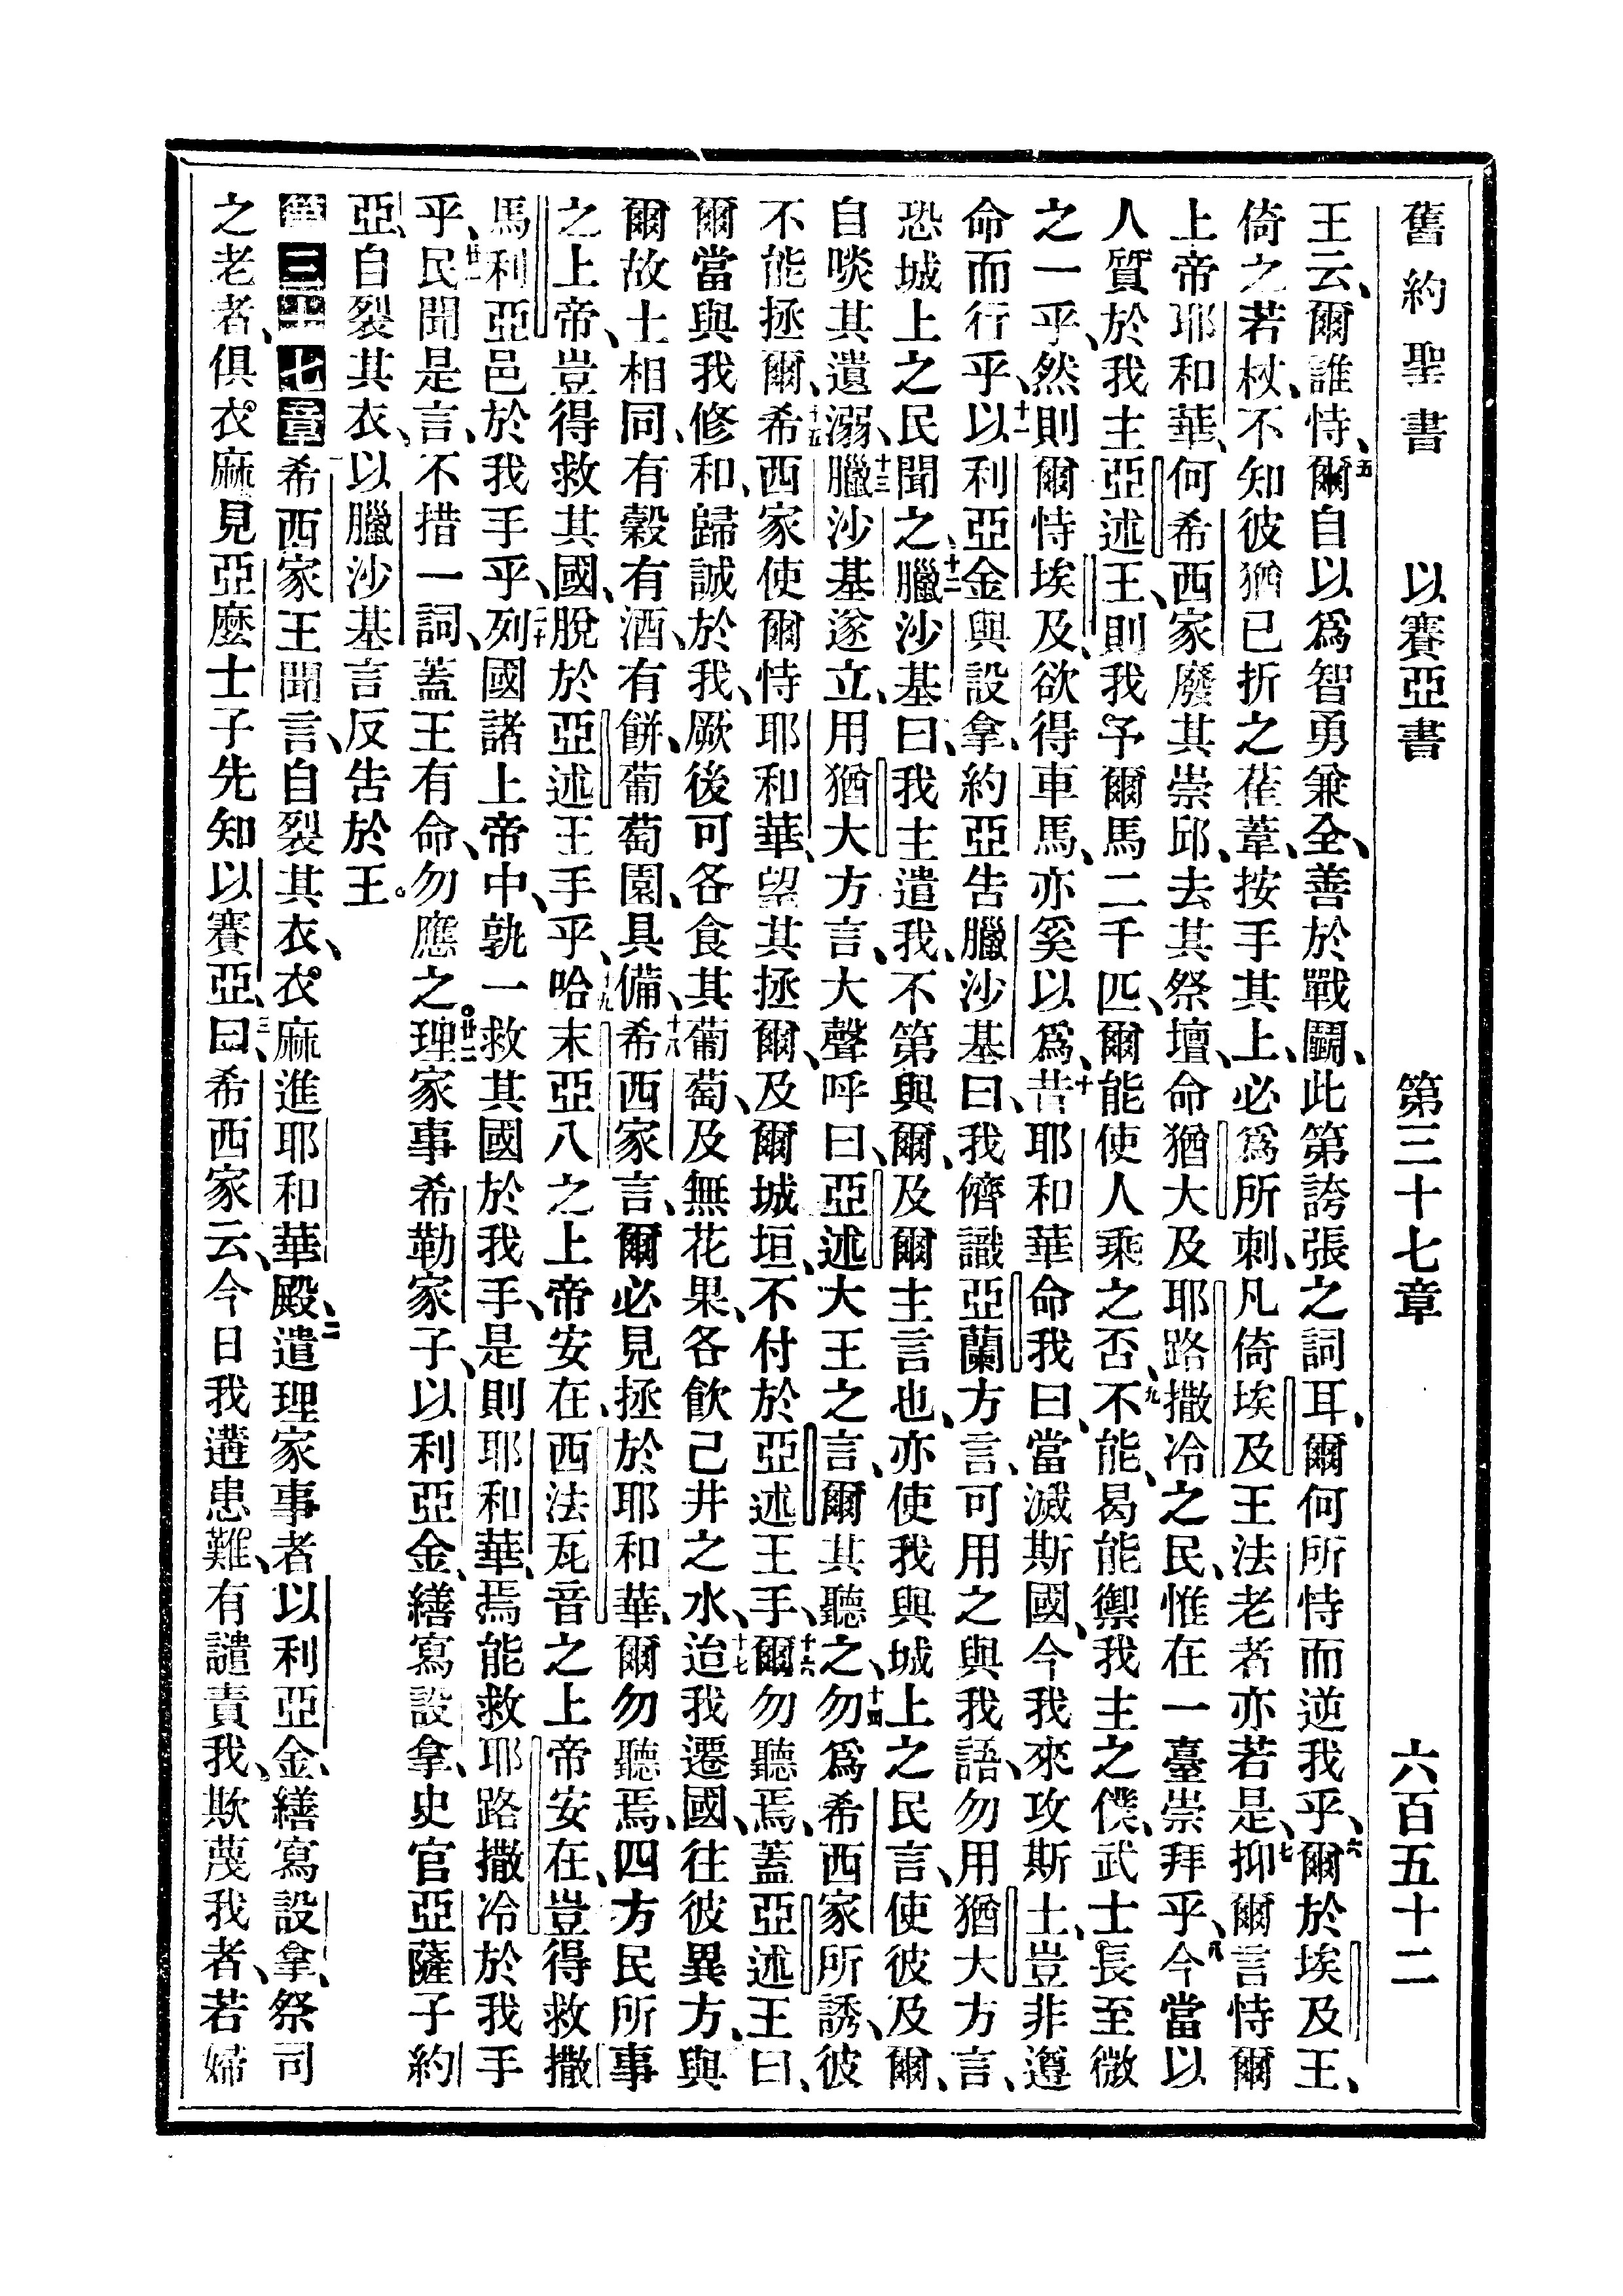 舊約聖書 以賽亞書 第三十七章 六百五十二
王云、爾誰恃、五爾自以爲智勇兼全、善於戰鬭、此第誇張之詞耳、爾何所恃而逆我乎、六爾於埃及王、
倚之若杖、不知彼猶已折之萑葦、按手其上、必爲所刺、凡倚埃及王法老者亦若是、七抑爾言恃爾
上帝耶和華、何希西家廢其崇邱、去其祭壇、命猶大及耶路撒冷之民、惟在一臺崇拜乎、八今當以
人質於我主亞述王、則我予爾馬二千匹、爾能使人乘之否、九不能、曷能禦我主之僕、武士長至微
之一乎、然則爾恃埃及、欲得車馬、亦奚以爲、十昔耶和華命我曰、當滅斯國、今我來攻斯土、豈非遵
命而行乎、十一以利亞金與設拿、約亞告臘沙基曰、我儕識亞蘭方言、可用之與我語、勿用猶大方言、
恐城上之民聞之、十二臘沙基曰、我主遣我、不第與爾、及爾主言也、亦使我與城上之民言、使彼及爾、
自啖其遺溺、十三臘沙基遂立、用猶大方言、大聲呼曰、亞述大王之言、爾其聽之、十四勿爲希西家所誘、彼
不能拯爾、十五希西家使爾恃耶和華、望其拯爾、及爾城垣、不付於亞述王手、十六爾勿聽焉、蓋亞述王曰、
爾當與我修和、歸誠於我、厥後可各食其葡萄、及無花果、各飲己井之水、十七迨我遷國、往彼異方、與
爾故土相同、有穀有酒、有餅、葡萄園、具備、十八希西家言、爾必見拯於耶和華、爾勿聽焉、四方民所事
之上帝、豈得救其國、脫於亞述王手乎、十九哈末亞八之上帝安在、西法瓦音之上帝安在、豈得救撒
馬利亞邑於我手乎、二十列國諸上帝中、孰一救其國於我手、是則耶和華、焉能救耶路撒冷於我手
乎、廿一民聞是言、不措一詞、蓋王有命、勿應之。廿二理家事希勒家子、以利亞金、繕寫設拿、史官亞薩子約
亞、自裂其衣、以臘沙基言反告於王。
第三十七章 希西家王聞言、自裂其衣、衣麻進耶和華殿、二遣理家事者以利亞金、繕寫設拿、祭司
之老者、俱衣麻見亞麼士子先知以賽亞、三曰、希西家云、今日我遘患難、有譴責我、欺蔑我者、若婦